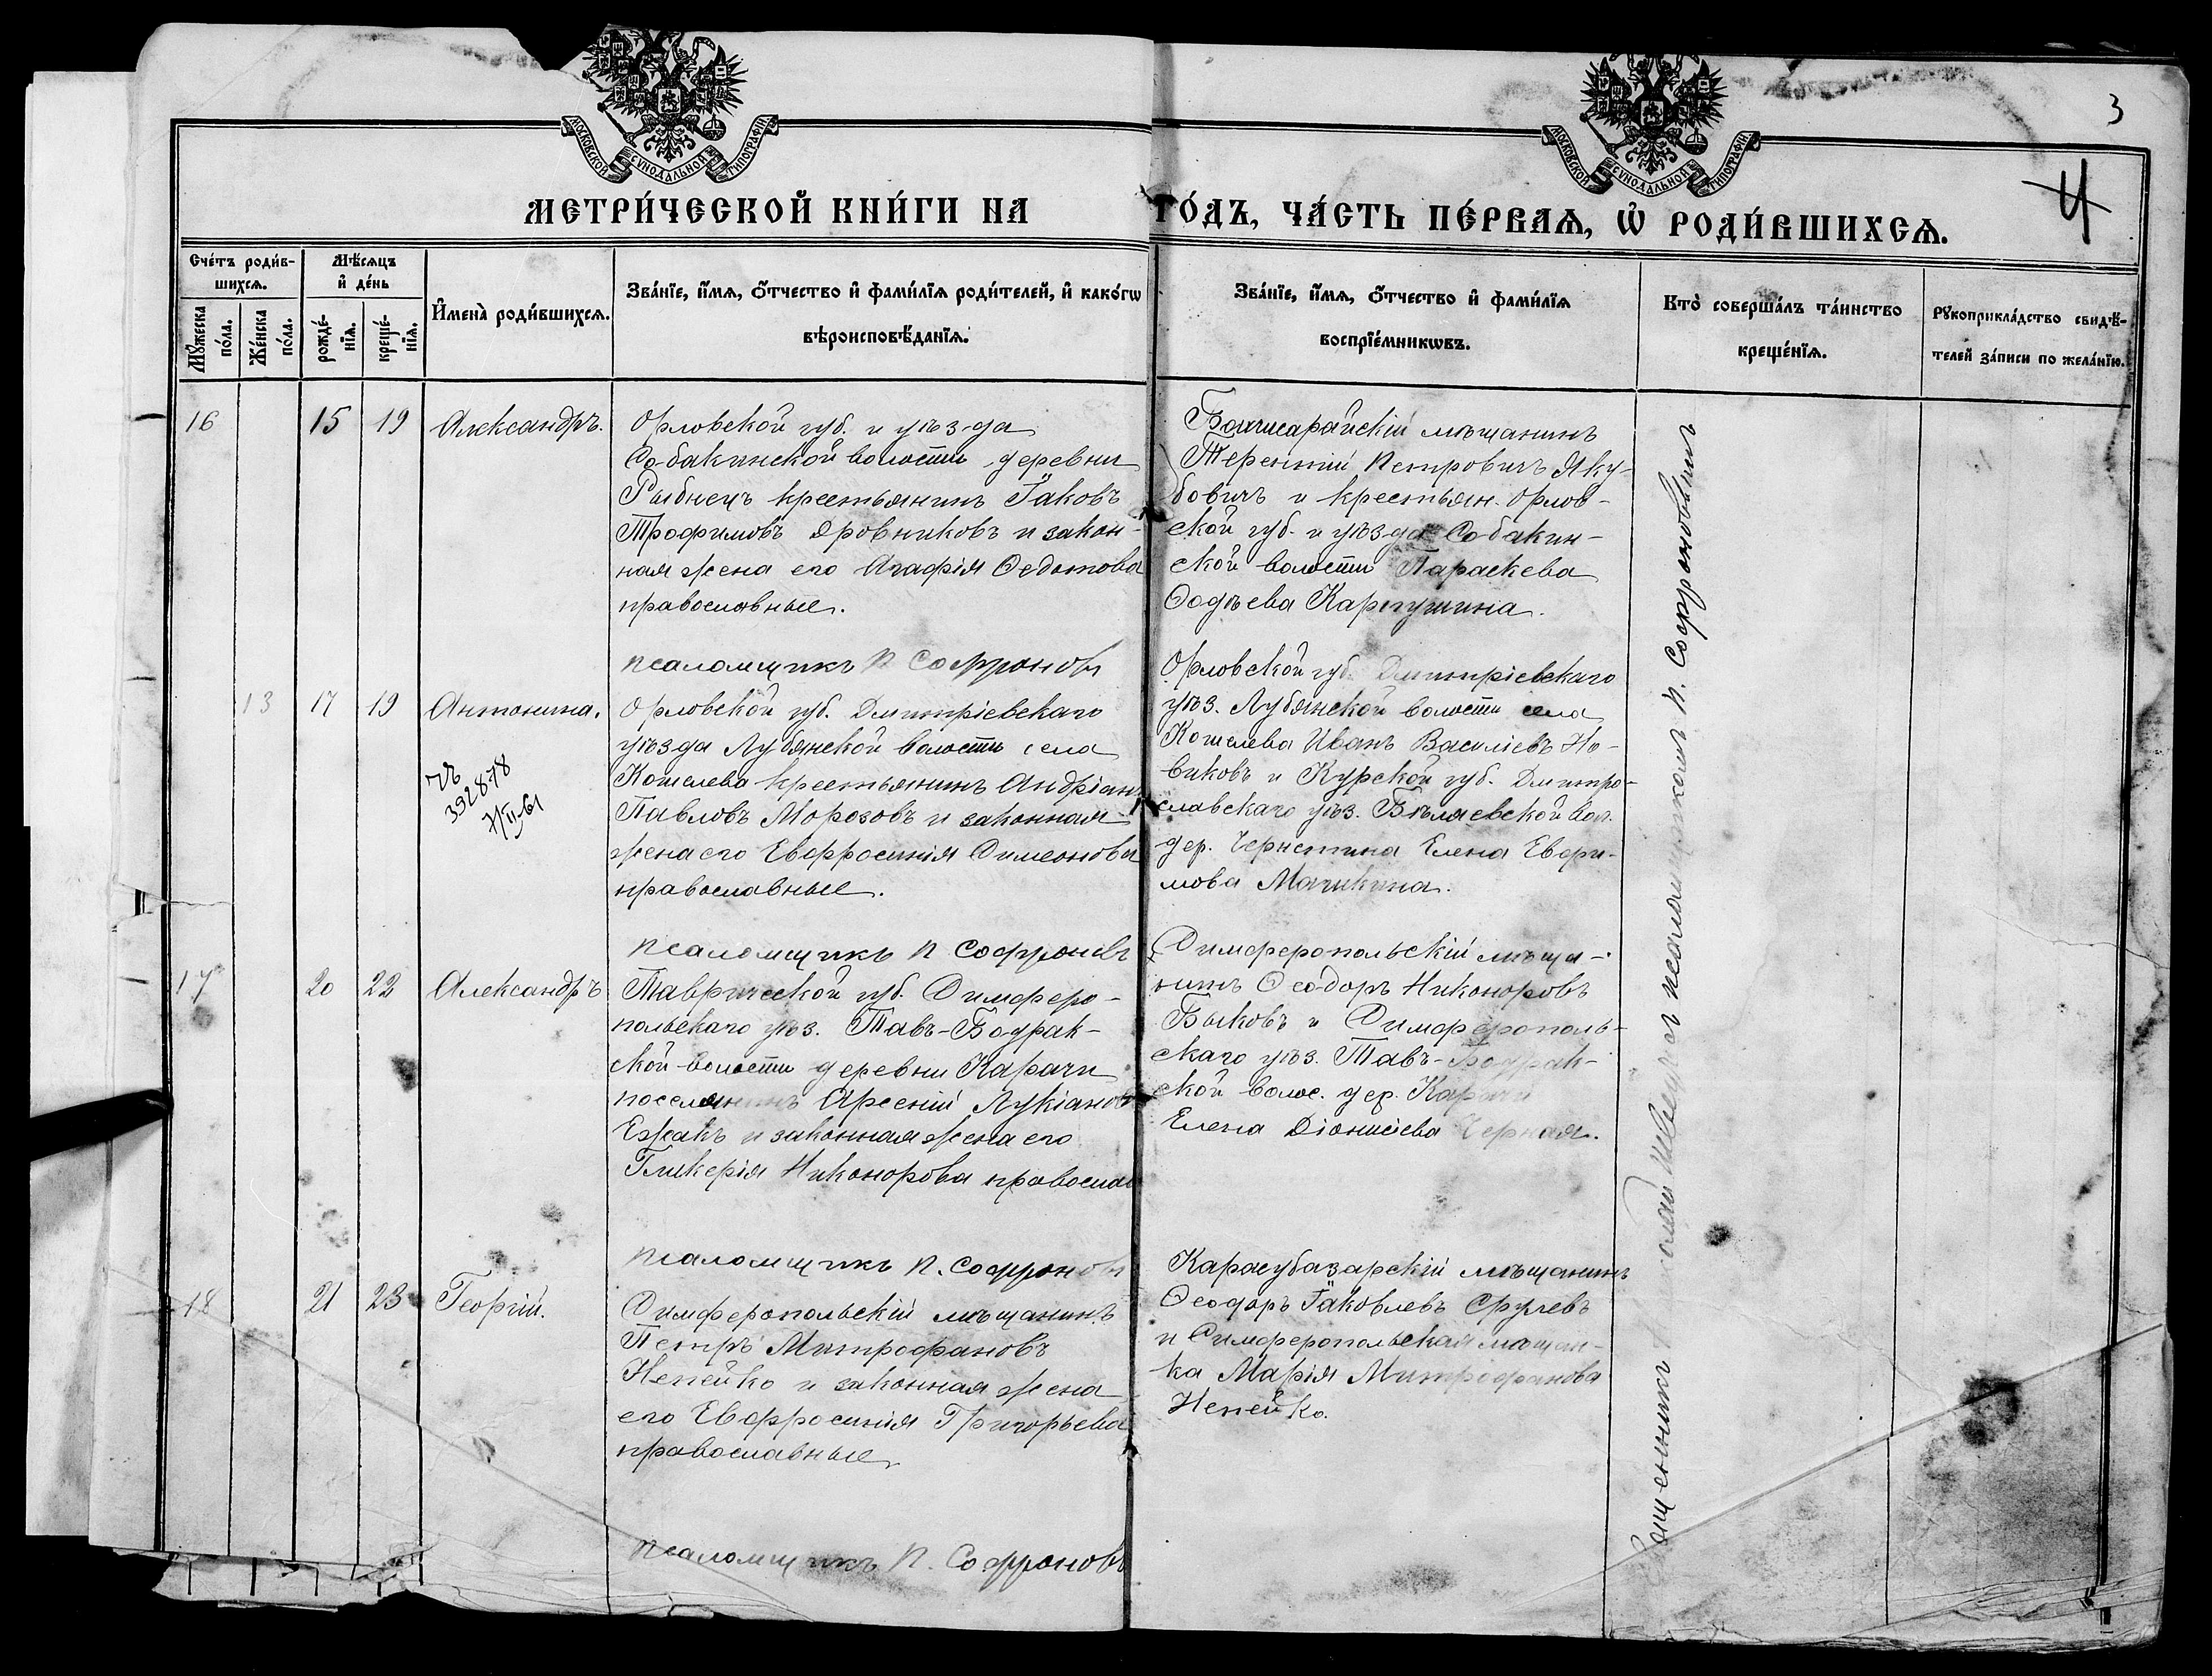 МОСКОВСКОЙ СѴНОДАЛЬНОЙ ТИПОГРАФІИ
МОСКОВСКОЙ СѴНОДАЛЬНОЙ ТИПОГРАФІИ
3
4
МЕТРИ́ЧЕСКОЙ КНИ́ГИ НА
ГО́ДЪ, ЧА́СТЬ ПЕ́РВАѦ, Ѽ РОДИ́ВШИХСѦ.
Сче́тъ роди́в-
шихсѧ.
Мѣ́сѧцъ
и҆ де́нь
Мꙋ́жеска по́ла.
Же́нска по́ла.
рожде́-
нїѧ.
креще́-
нїѧ.
И҆мена̀ роди́вшихсѧ.
Зва́нїе, и҆́мѧ, ѻ҆́тчество и҆ фами́лїѧ роди́телей, и҆ како́гѡ
вѣроисповѣ́данїѧ.
Зва́нїе, и҆́мѧ, ѻ҆́тчество и҆ фами́лїѧ
воспрїе́мникѡвъ.
Кто̀ соверша́лъ та́инство
креще́нїѧ.
Рꙋкоприкла́дство свидѣ́-
телей за́писи по жела́нїю.
16 15 19 Александръ.
Орловской губ. и уѣзда
Собакинской волости деревни
Рыбнецъ крестьянинъ Іаковъ
Трофимовъ Дровниковъ и закон-
ная жена его Агафія Ѳедотова
православные.
псаломщикъ П Софроновъ
Бахчисарайскій мѣщанинъ
Терентій Петровичъ Яку-
бовичъ и крестьян. Орлов-
ской губ. и уѣзда Собакин-
ской волости Параскева
Ѳадѣева Карпушина.
13 17 19 Антонина.
392878
Орловской губ. Дмитріевскаго
уѣзда Лубянской волости села
Кошелева крестьянинъ Андріанъ
Павловъ Морозовъ и законная
жена его Евфросинія Симеонова
православные.
псаломщикъ П Софроновъ
Орловской губ. Дмитріевскаго
уѣз. Лубянской волости села
Кошелева Иванъ Василіевъ Но-
виковъ и Курской губ. Дмитро-
славскаго уѣз. Бѣляевской вол.
дер. Елена Евфи-
мова
17 20 22 Александръ
Таврической губ. Симферо-
польскаго уѣз. Тавъ-Бодрак-
ской волости деревни Карачи
поселянинъ Арсеній Лукіановъ
Ежакъ и законная жена его
Гликерія Никонорова православ
псаломщикъ П. Софроновъ
Симферопольскій мѣща-
нинъ Ѳеодоръ Никоноровъ
Быковъ и Симферополь-
скаго уѣз. Тавъ-Бодрак-
ской волос. дер. Карачи
Елена Діонисіева Черная.
18 21 23 Георгій.
Симферопольскій мѣщанинъ
Петръ Митрофановъ
Непейко и законная жена
его Евфросинія Григорьева
православные
псаломщикъ П. Софроновъ
Карасубазарскій мѣщанинъ
Ѳеодоръ Іаковлевъ
и Симферопольская мѣщан-
ка Марія Митрофанова
Непейко.
Священникъ Швецъ съ псаломщикомъ П. Софроновымъ